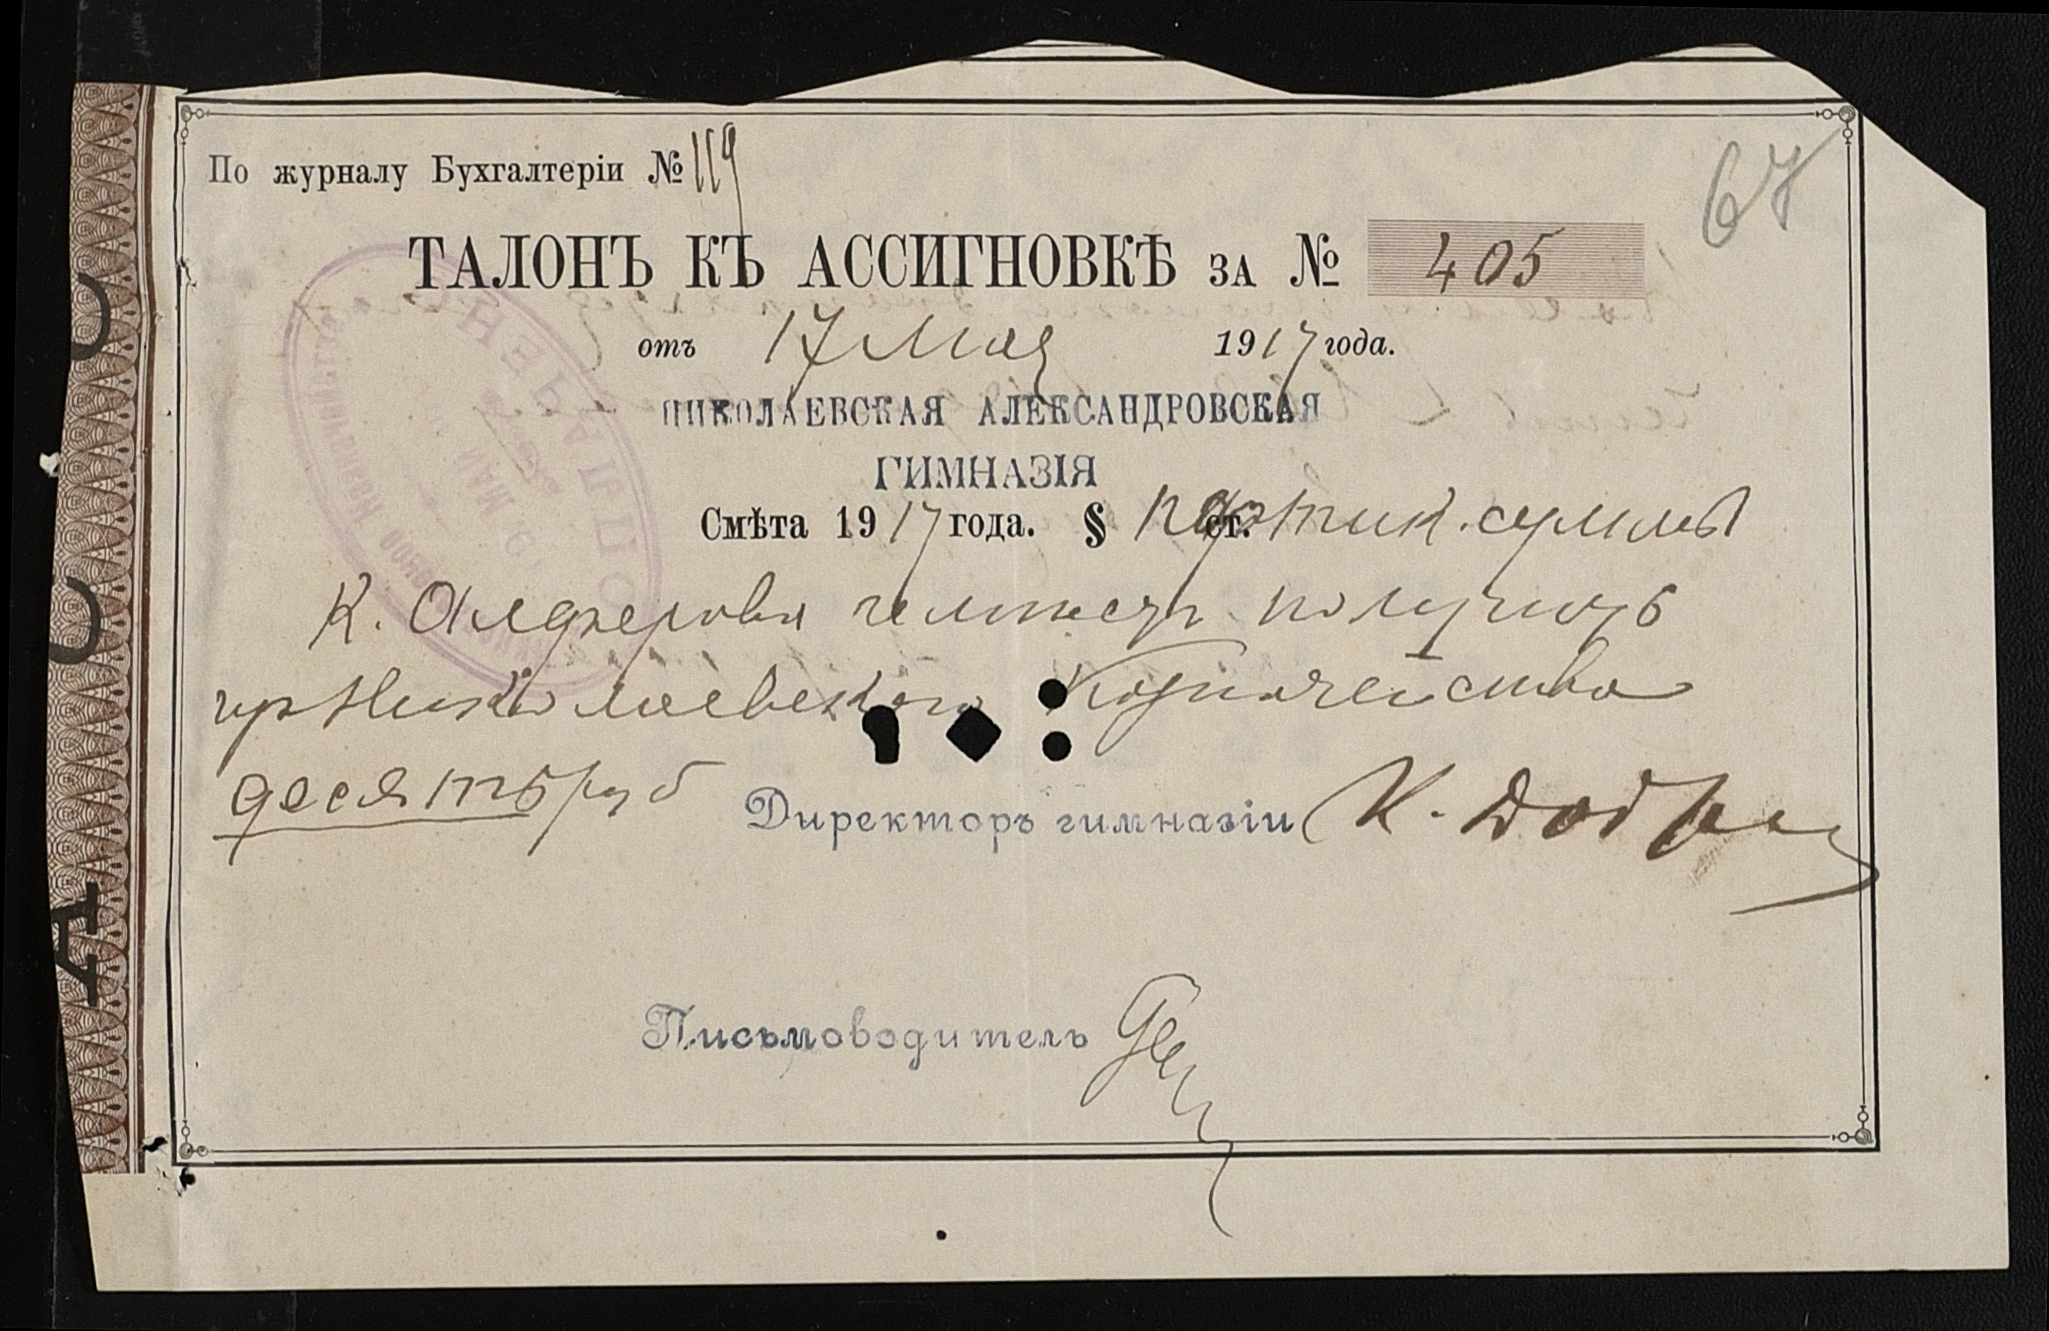 67
По журналу Бухгалтеріи № 119
ТАЛОНЪ КЪ АССИГНОВКѢ ЗА № 405
отъ 17 Мая 1917 года.
НИКОЛАЕВСКАЯ АЛЕКСАНДРОВСКАЯ
ГИМНАЗІЯ
Смѣта 1917 года. § ст. партик. суммы
К. Алферова имѣетъ получить
изъ Николаевскаго Казначейства
десять руб
Директоръ гимназіи К.
Письмоводитель